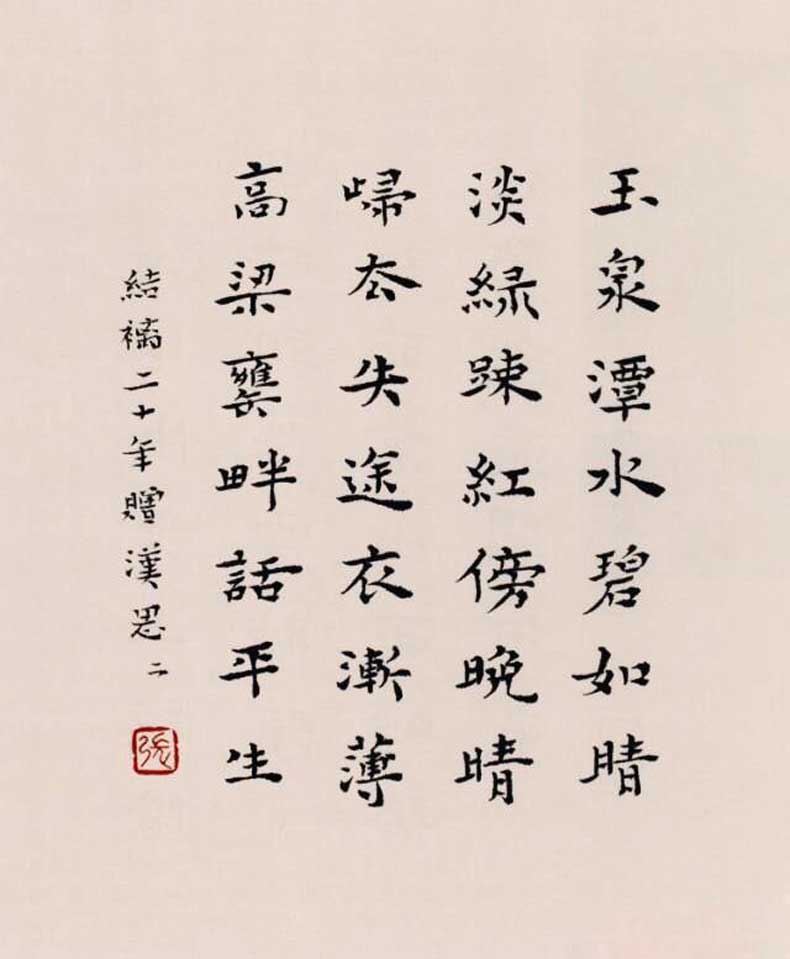 玉泉潭水碧如睛
淡綠踈紅傍晚晴
歸去失途衣漸薄
高梁罋畔話平生
結褵二十年贈漢思 二
張